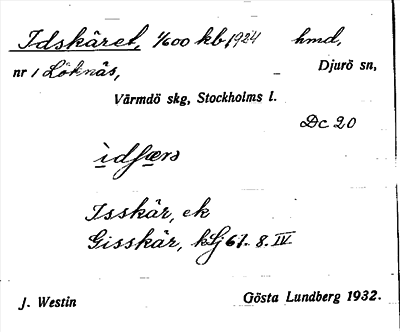 Idskäret, 1/600 kb, 1924 hmd,
nr 1 Löknäs, Djurö sn,
Värmdö skg, Stockholms l.
Dc 20
idfærə
Isskär, ek
Gisskär, klj 67. 8. IV.
J. Westin Gösta Lundberg 1932.